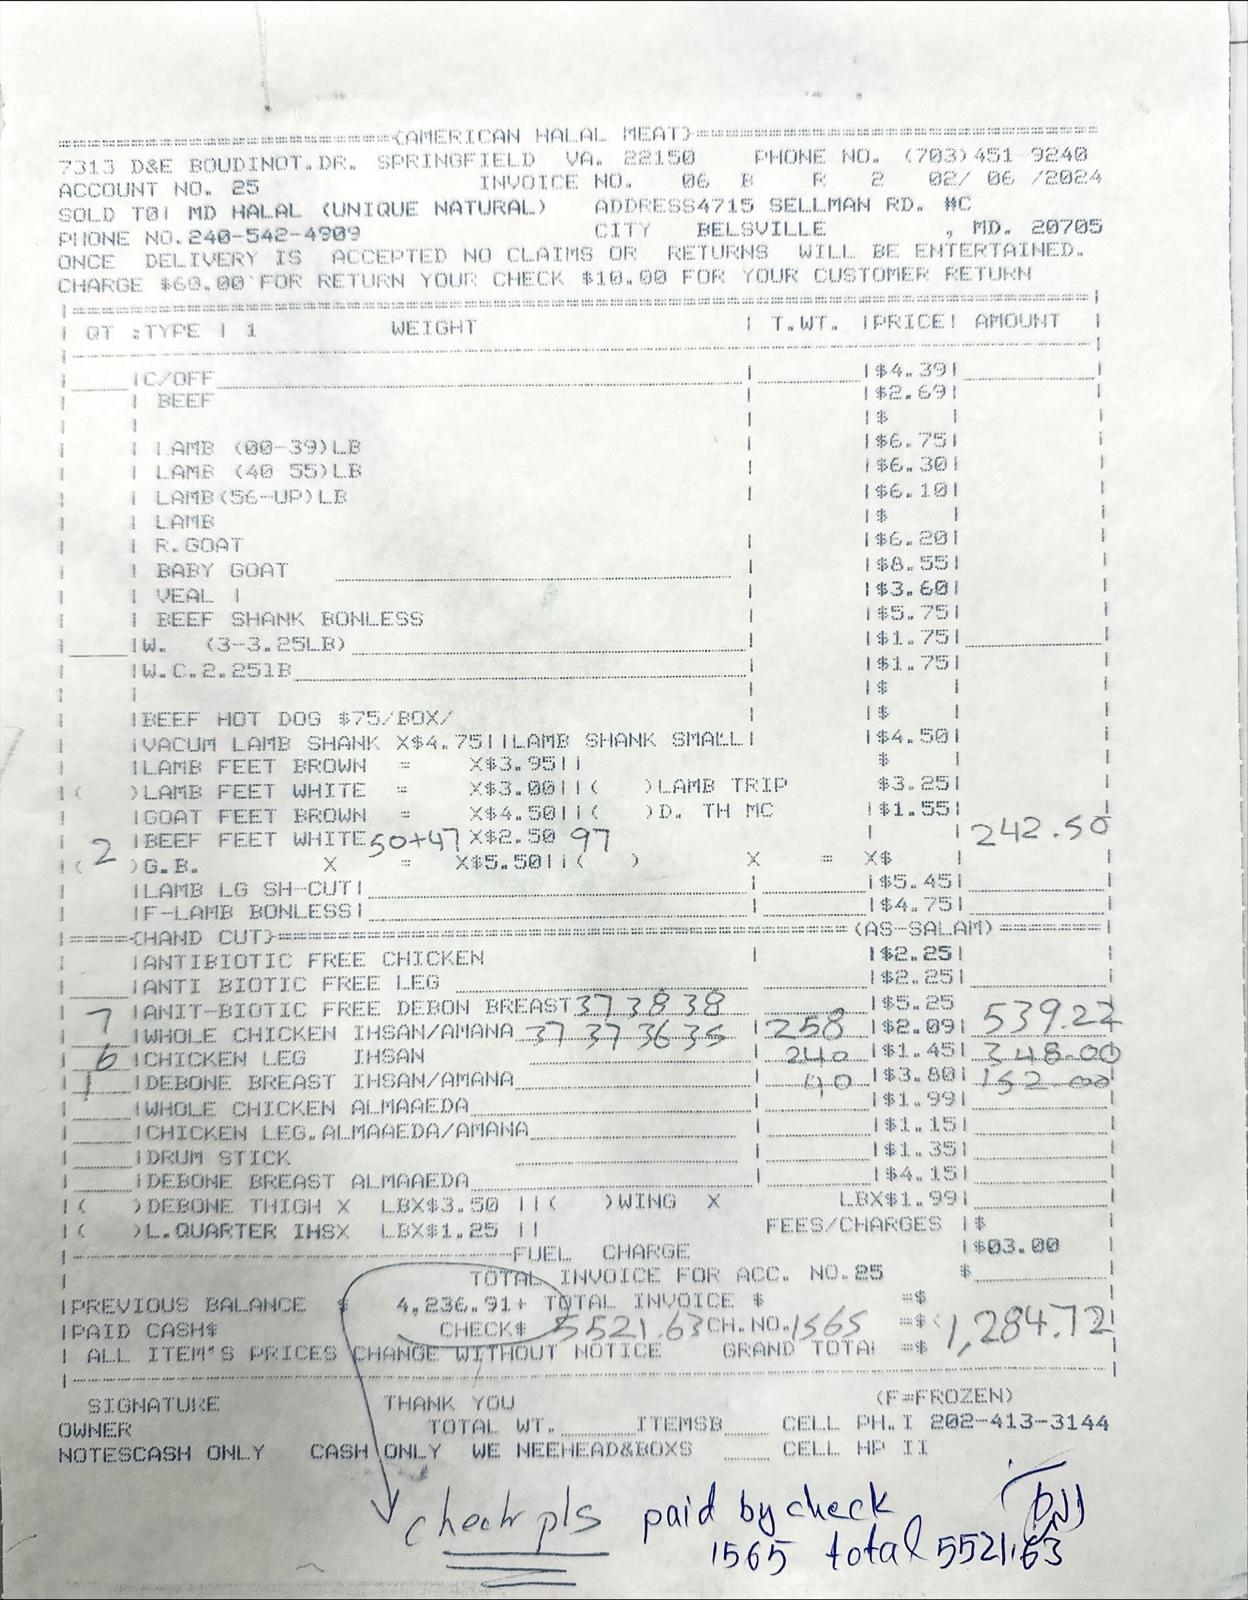 (AMERICAN HALAL MEAT)
7313 D&E BOUDINOT.DR. SPRINGFIELD VA. 22150 PHONE NO. (703)451-9240
ACCOUNT NO. 25 INVOICE NO. 06 B R 2 02/ 06 /2024
SOLD TO! MD HALAL (UNIQUE NATURAL) ADDRESS4715 SELLMAN RD. #C
PHONE NO.240-542-4909 CITY BELSVILLE , MD. 20705
ONCE DELIVERY IS ACCEPTED NO CLAIMS OR RETURNS WILL BE ENTERTAINED.
CHARGE $60.00 FOR RETURN YOUR CHECK $10.00 FOR YOUR CUSTOMER RETURN
QT :TYPE | 1 WEIGHT | T.WT. |PRICE| AMOUNT |
|C/OFF | |$4.39|
| BEEF | |$2.69|
|$ |
| LAMB (00-39)LB |$6.75|
| LAMB (40 55)LB |$6.30|
| LAMB(56-UP)LB |$6.10|
| LAMB |$ |
| R.GOAT |$6.20|
| BABY GOAT |$8.55|
| VEAL | |$3.60|
| BEEF SHANK BONLESS |$5.75|
|W. (3-3.25LB) |$1.75|
|W.C.2.25lB |$1.75|
|$ |
|BEEF HOT DOG $75/BOX/ |$ |
|VACUM LAMB SHANK X$4.75||LAMB SHANK SMALL| |$4.50|
|LAMB FEET BROWN = X$3.95|| $ |
|( )LAMB FEET WHITE = X$3.00||( )LAMB TRIP $3.25|
|GOAT FEET BROWN = X$4.50||( )D. TH MC |$1.55|
|BEEF FEET WHITE 50+47 X$2.50 97 | | 242.50
|( 2 )G.B. X = X$5.50||( ) X = X$ |
|LAMB LG SH-CUT| | |$5.45|
|F-LAMB BONLESS| | |$4.75|
|====(HAND CUT)====(AS-SALAM)====|
|ANTIBIOTIC FREE CHICKEN | |$2.25|
|ANTI BIOTIC FREE LEG |$2.25|
|ANIT-BIOTIC FREE DEBON BREAST 37 38 38 |$5.25
7 |WHOLE CHICKEN IHSAN/AMANA 37 37 36 35 | 258 |$2.09| 539.22
6 |CHICKEN LEG IHSAN 240 |$1.45| 348.00
1 |DEBONE BREAST IHSAN/AMANA | 40 |$3.80| 152.00
|WHOLE CHICKEN ALMAAEDA | |$1.99|
|CHICKEN LEG.ALMAAEDA/AMANA | |$1.15|
|DRUM STICK | |$1.35|
|DEBONE BREAST ALMAAEDA | |$4.15|
|( )DEBONE THIGH X LBX$3.50 ||( )WING X LBX$1.99|
|( )L.QUARTER IHSX LBX$1.25 || FEES/CHARGES |$
FUEL CHARGE |$03.00
TOTAL INVOICE FOR ACC. NO.25 $
|PREVIOUS BALANCE $ 4,236.91+ TOTAL INVOICE $ =$
|PAID CASH$ CHECK$ 5521.63 CH.NO. 1565 =$< 1,284.72
| ALL ITEM'S PRICES CHANGE WITHOUT NOTICE GRAND TOTAL =$
SIGNATURE THANK YOU (F=FROZEN)
OWNER TOTAL WT. ITEMSB CELL PH.I 202-413-3144
NOTESCASH ONLY CASH ONLY WE NEEHEAD&BOXS CELL HP II
check pls paid by check
1565 total 5521.63